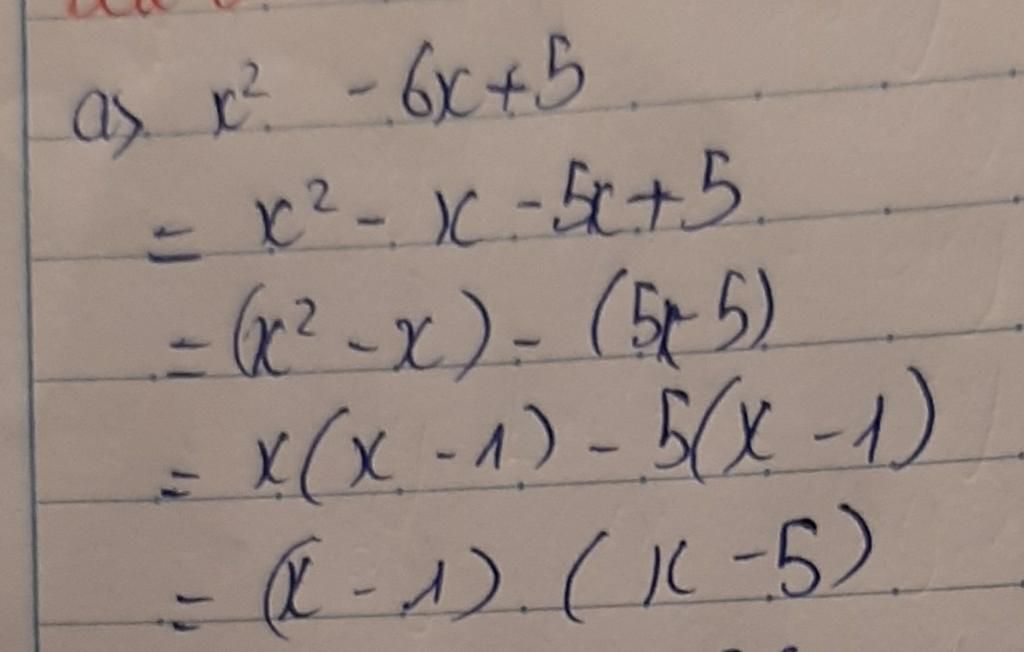 a> x² - 6x + 5
= x² - x - 5x + 5
= (x² - x) - (5x - 5)
= x(x - 1) - 5(x - 1)
= (x - 1) (x - 5)